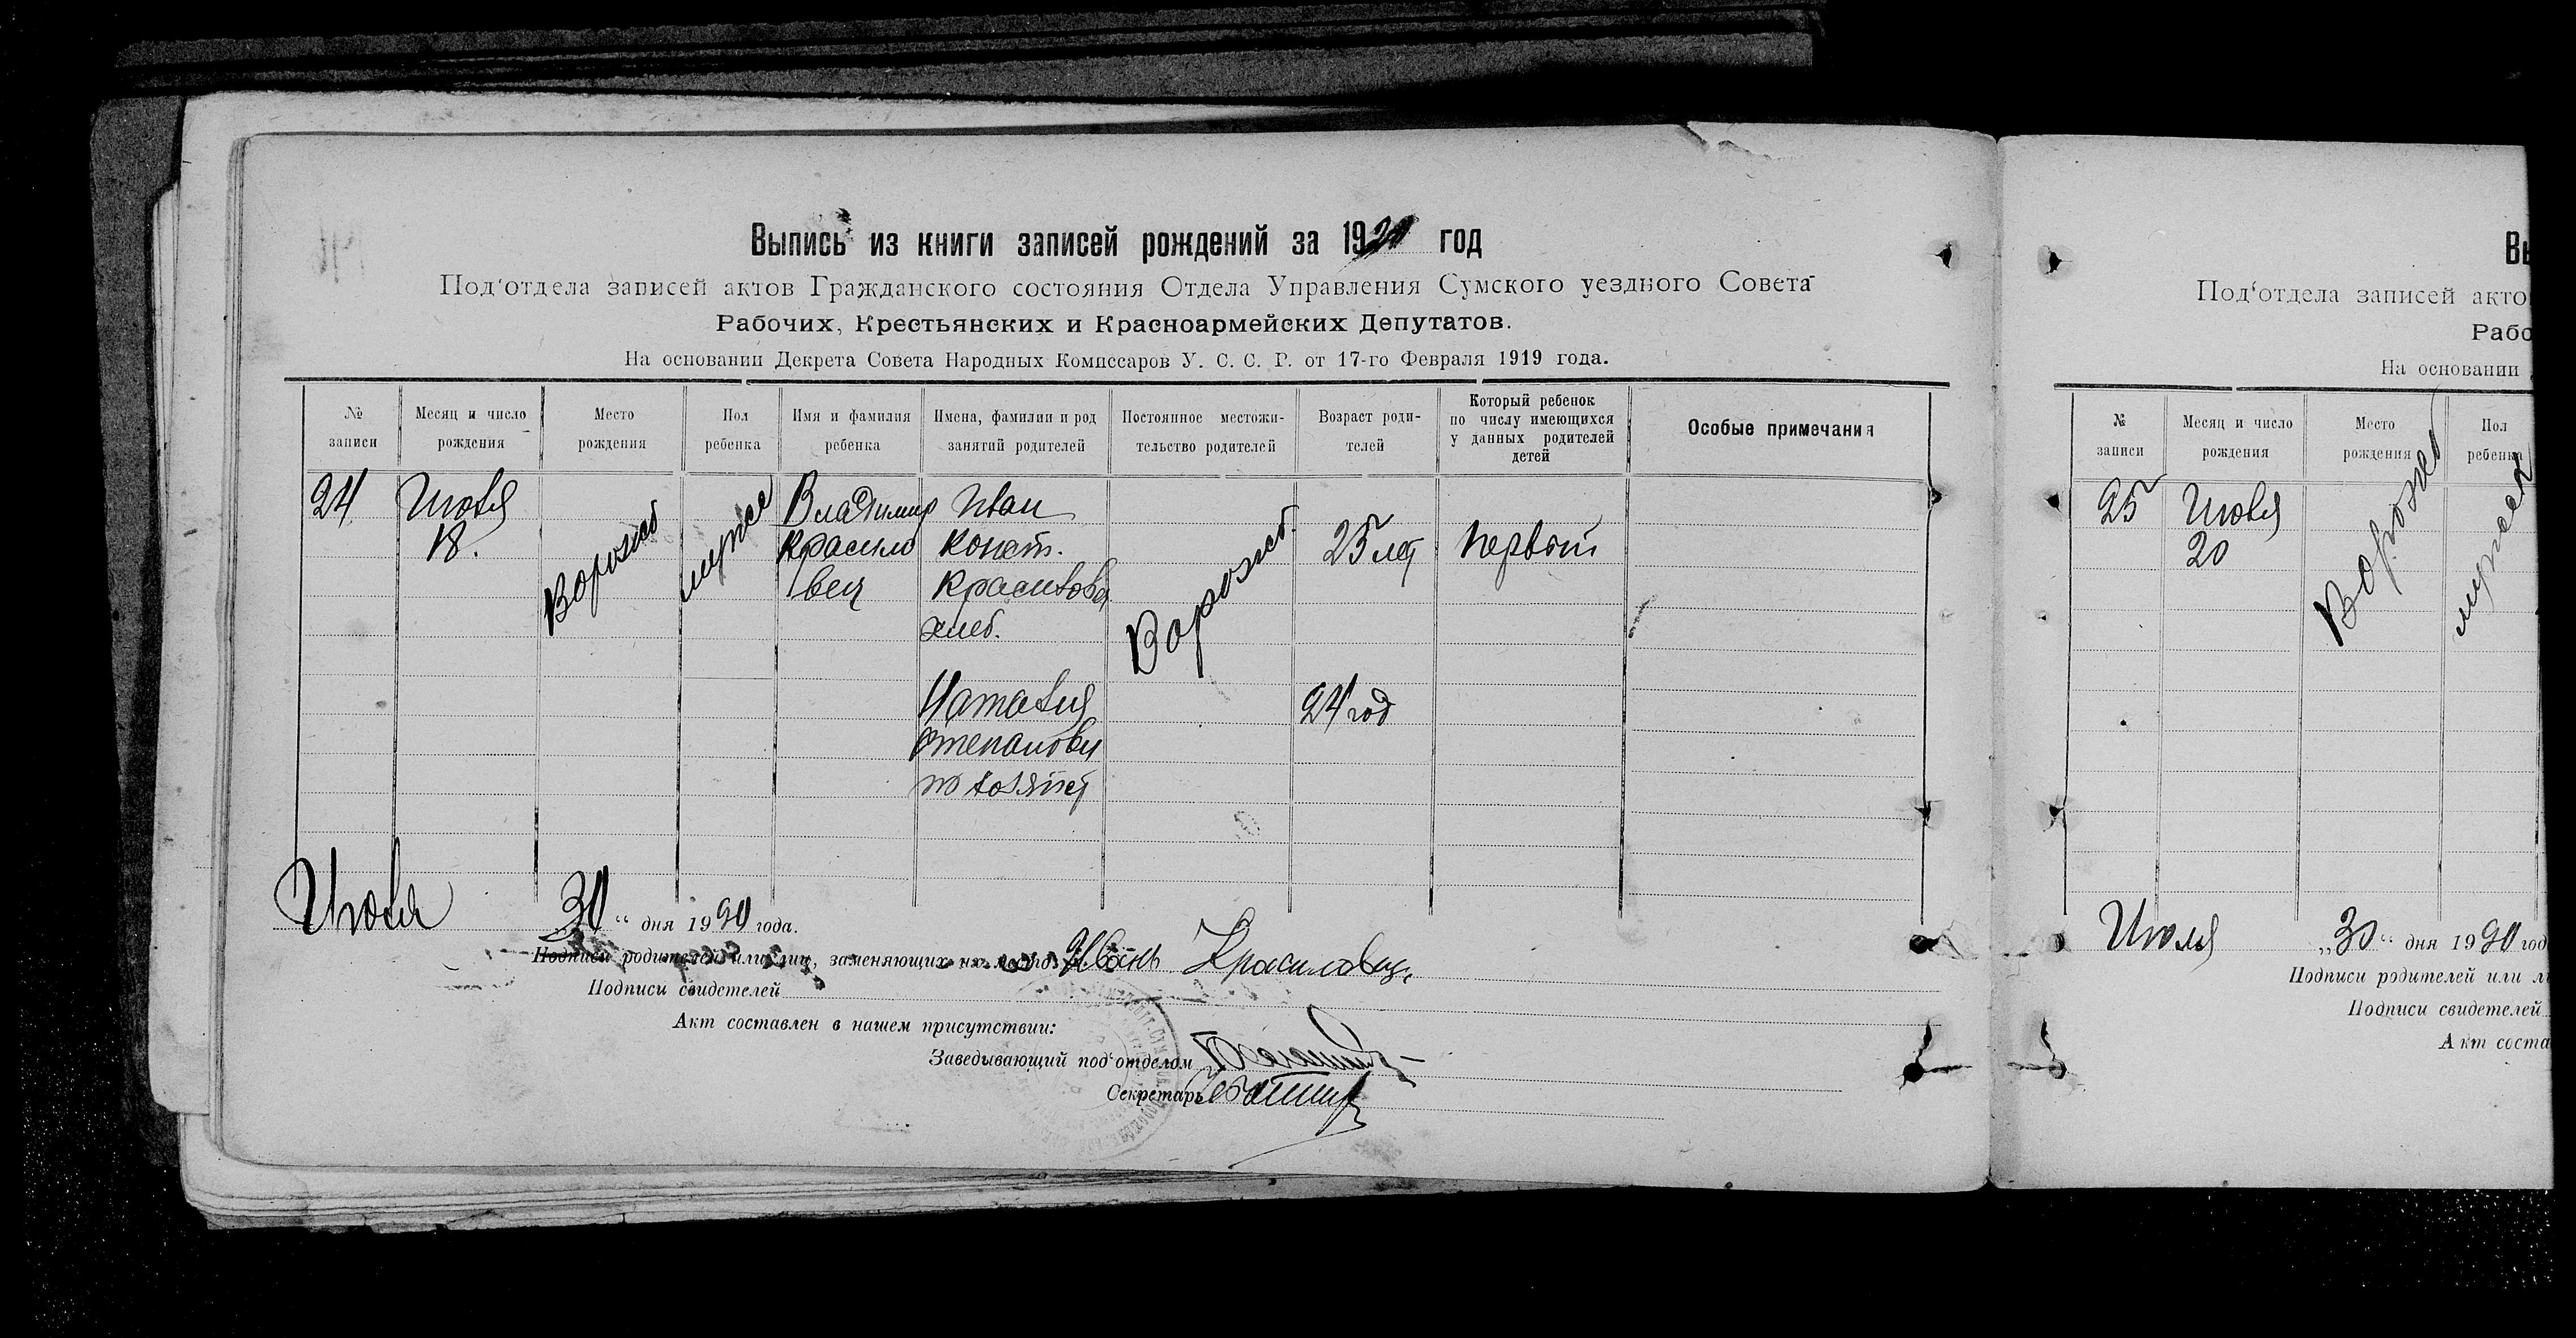 Выпись из книги записей рождений за 1920 год
Под‘отдела записей актов Гражданского состояния Отдела Управления Сумского уездного Совета
Рабочих, Крестьянских и Красноармейских Депутатов.
На основании Декрета Совета Народных Комиссаров У. С. С. Р. от 17-го Февраля 1919 года.
№ записи
Месяц и число рождения
Место рождения
Пол ребенка
Имя и фамилия ребенка
Имена, фамилии и род занятий родителей
Постоянное местожительство родителей
Возраст родителей
Который ребенок по числу имеющихся у данных родителей детей
Особые примечания
24
Июля
18.
Ворожб
мужск
Владимир
Красило
вец
Иван
Конст.
Красилове
хлеб.
Ворожб.
25 лет
Первый
Наталия
Степановн
24 год
Июля 30 “ дня 1920 года.
Подписи родителей или лиц, заменяющих их место Иван Красиловец
Подписи свидетелей
Акт составлен в нашем присутствии:
Заведывающий под‘отделом
Секретарь
Вы
Под‘отдела записей акто
Рабо
На основании
№ записи
Месяц и число рождения
Место рождения
Пол ребенка
25
Июля
20
Ворожб
мужск
Июля „30“ дня 1920 год
Подписи родителей или л
Подписи свидетелей
Акт соста